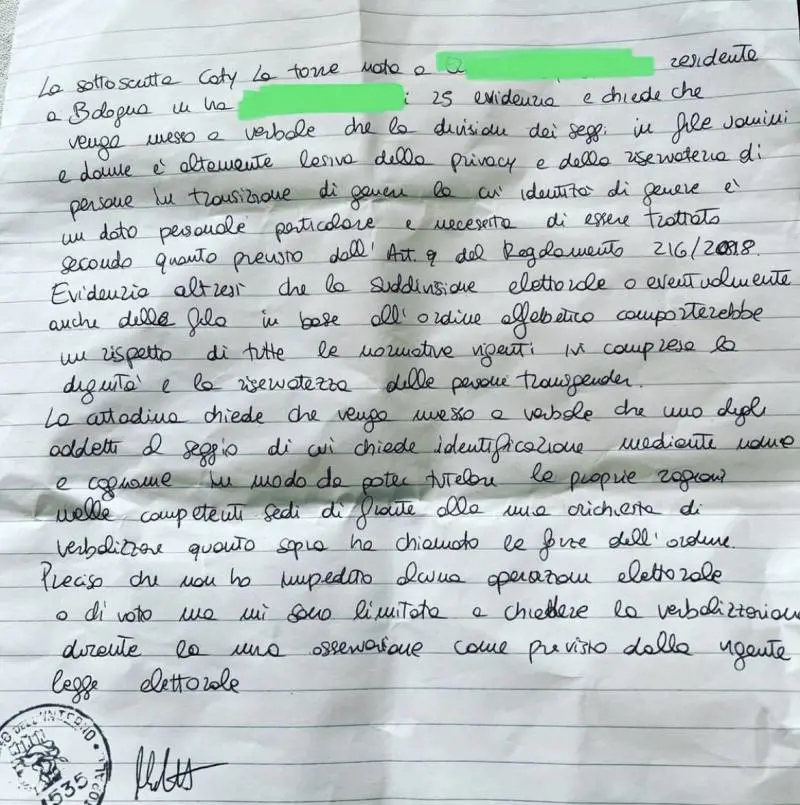 La sottoscritta Caty La torre nata a residente
a Bologna in via i 25 evidenzia e chiede che
venga messo a verbale che la divisione dei seggi in file uomini
e donne è altamente lesiva della privacy e della riservatezza di
persone in transizione di genere la cui identità di genere è
un dato personale particolare e necessita di essere trattato
secondo quanto previsto dall'Art. 9 del Regolamento 216/2018.
Evidenzia altresì che la suddivisione elettorale o eventualmente
anche della fila in base all'ordine alfabetico comporterebbe
un rispetto di tutte le normative vigenti ivi compresa la
dignità e la riservatezza delle persone transgender.
La cittadina chiede che venga messo a verbale che uno degli
addetti al seggio di cui chiede identificazione mediante nome
e cognome in modo da poter tutelare le proprie ragioni
nelle competenti sedi di fronte alla mia richiesta di
verbalizzare quanto sopra ha chiamato le forze dell'ordine.
Preciso che non ho impedito alcuna operazione elettorale
o di voto ma mi sono limitata a chiedere la verbalizzazione
durante la mia osservazione come previsto dalla vigente
legge elettorale
DELL'INTERNO
535